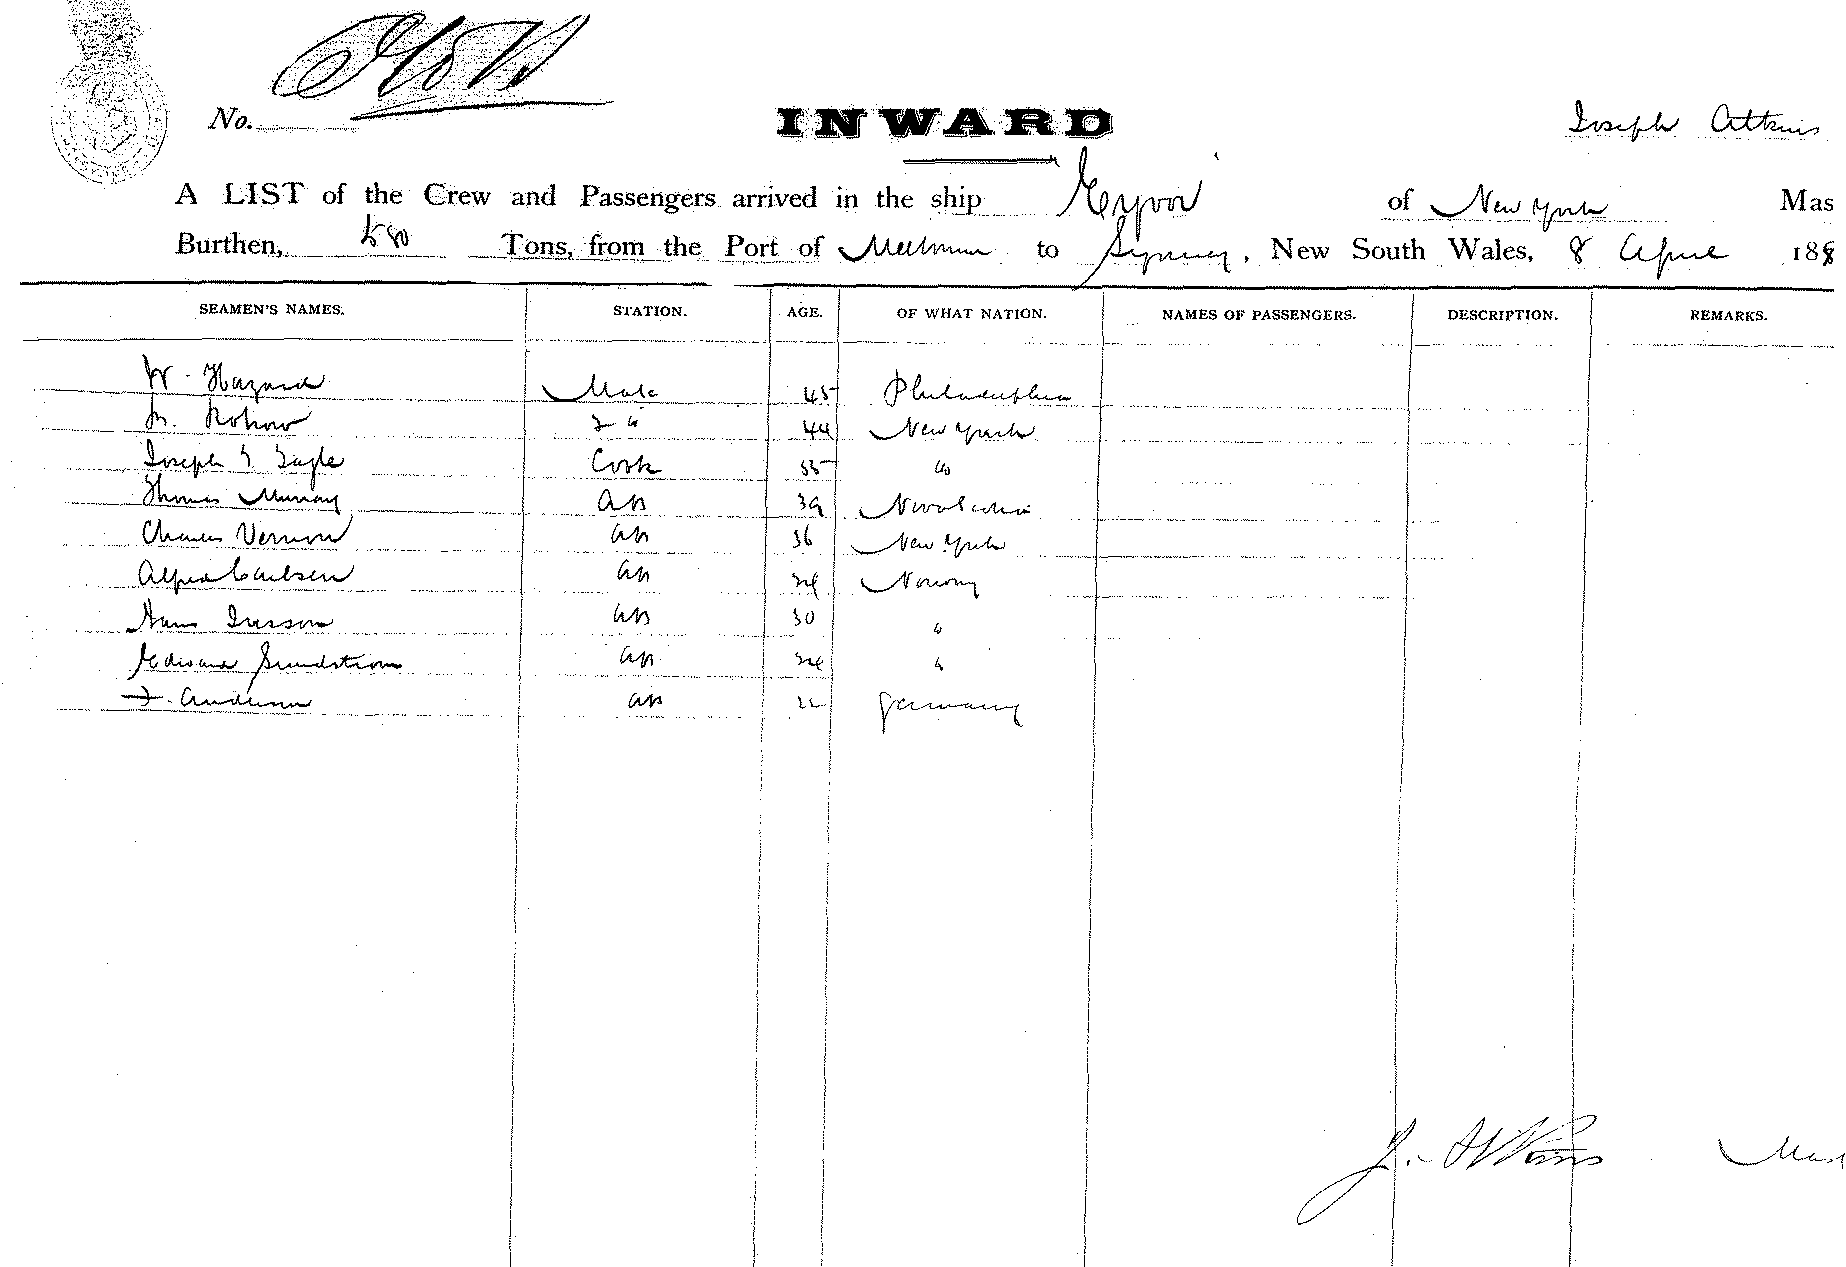 No.
INWARD
Joseph Atkins
A LIST of the Crew and Passengers arrived in the ship of New York Mas
Burthen, 580 Tons, from the Port of Melbourne to Sydney, New South Wales, 8 April 188
SEAMEN'S NAMES. STATION. AGE. OF WHAT NATION. NAMES OF PASSENGERS. DESCRIPTION. REMARKS.
W. Hazard Mate 45 Philadelphia
44 New York
Joseph Cook 55 do
Thomas Murray AB 39 Nova Scotia
Charles Vernon AB 36 New York
Alfred Carlsen AB 24 Norway
Hans AB 30
Edward Sundstrom AB 24
F. Anderson AB 22 Germany
J. Atkins Mast